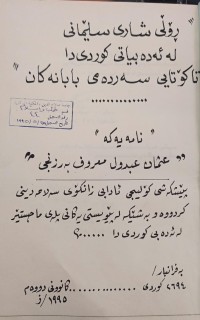 "رۆڵی شاری سلێمانی
لە ئەدەبیاتی کوردی دا
تا کۆتایی سەردەمی بابانەکان"
..............
"نامەیەکە"
"عثمان عبدول معروف بەرزنجی"
پێشکەشی کۆلیجی ئادابی زانکۆی سەلاحەدینی
کردووە و بەشێکە لە پێویستی یەکانی پلەی ماجستێر
لە ئەدەبی کوردی دا .....
بە فرانبار/
٢٦٩٤ کوردی .............. کانوونی دووەم
١٩٩٥/ز